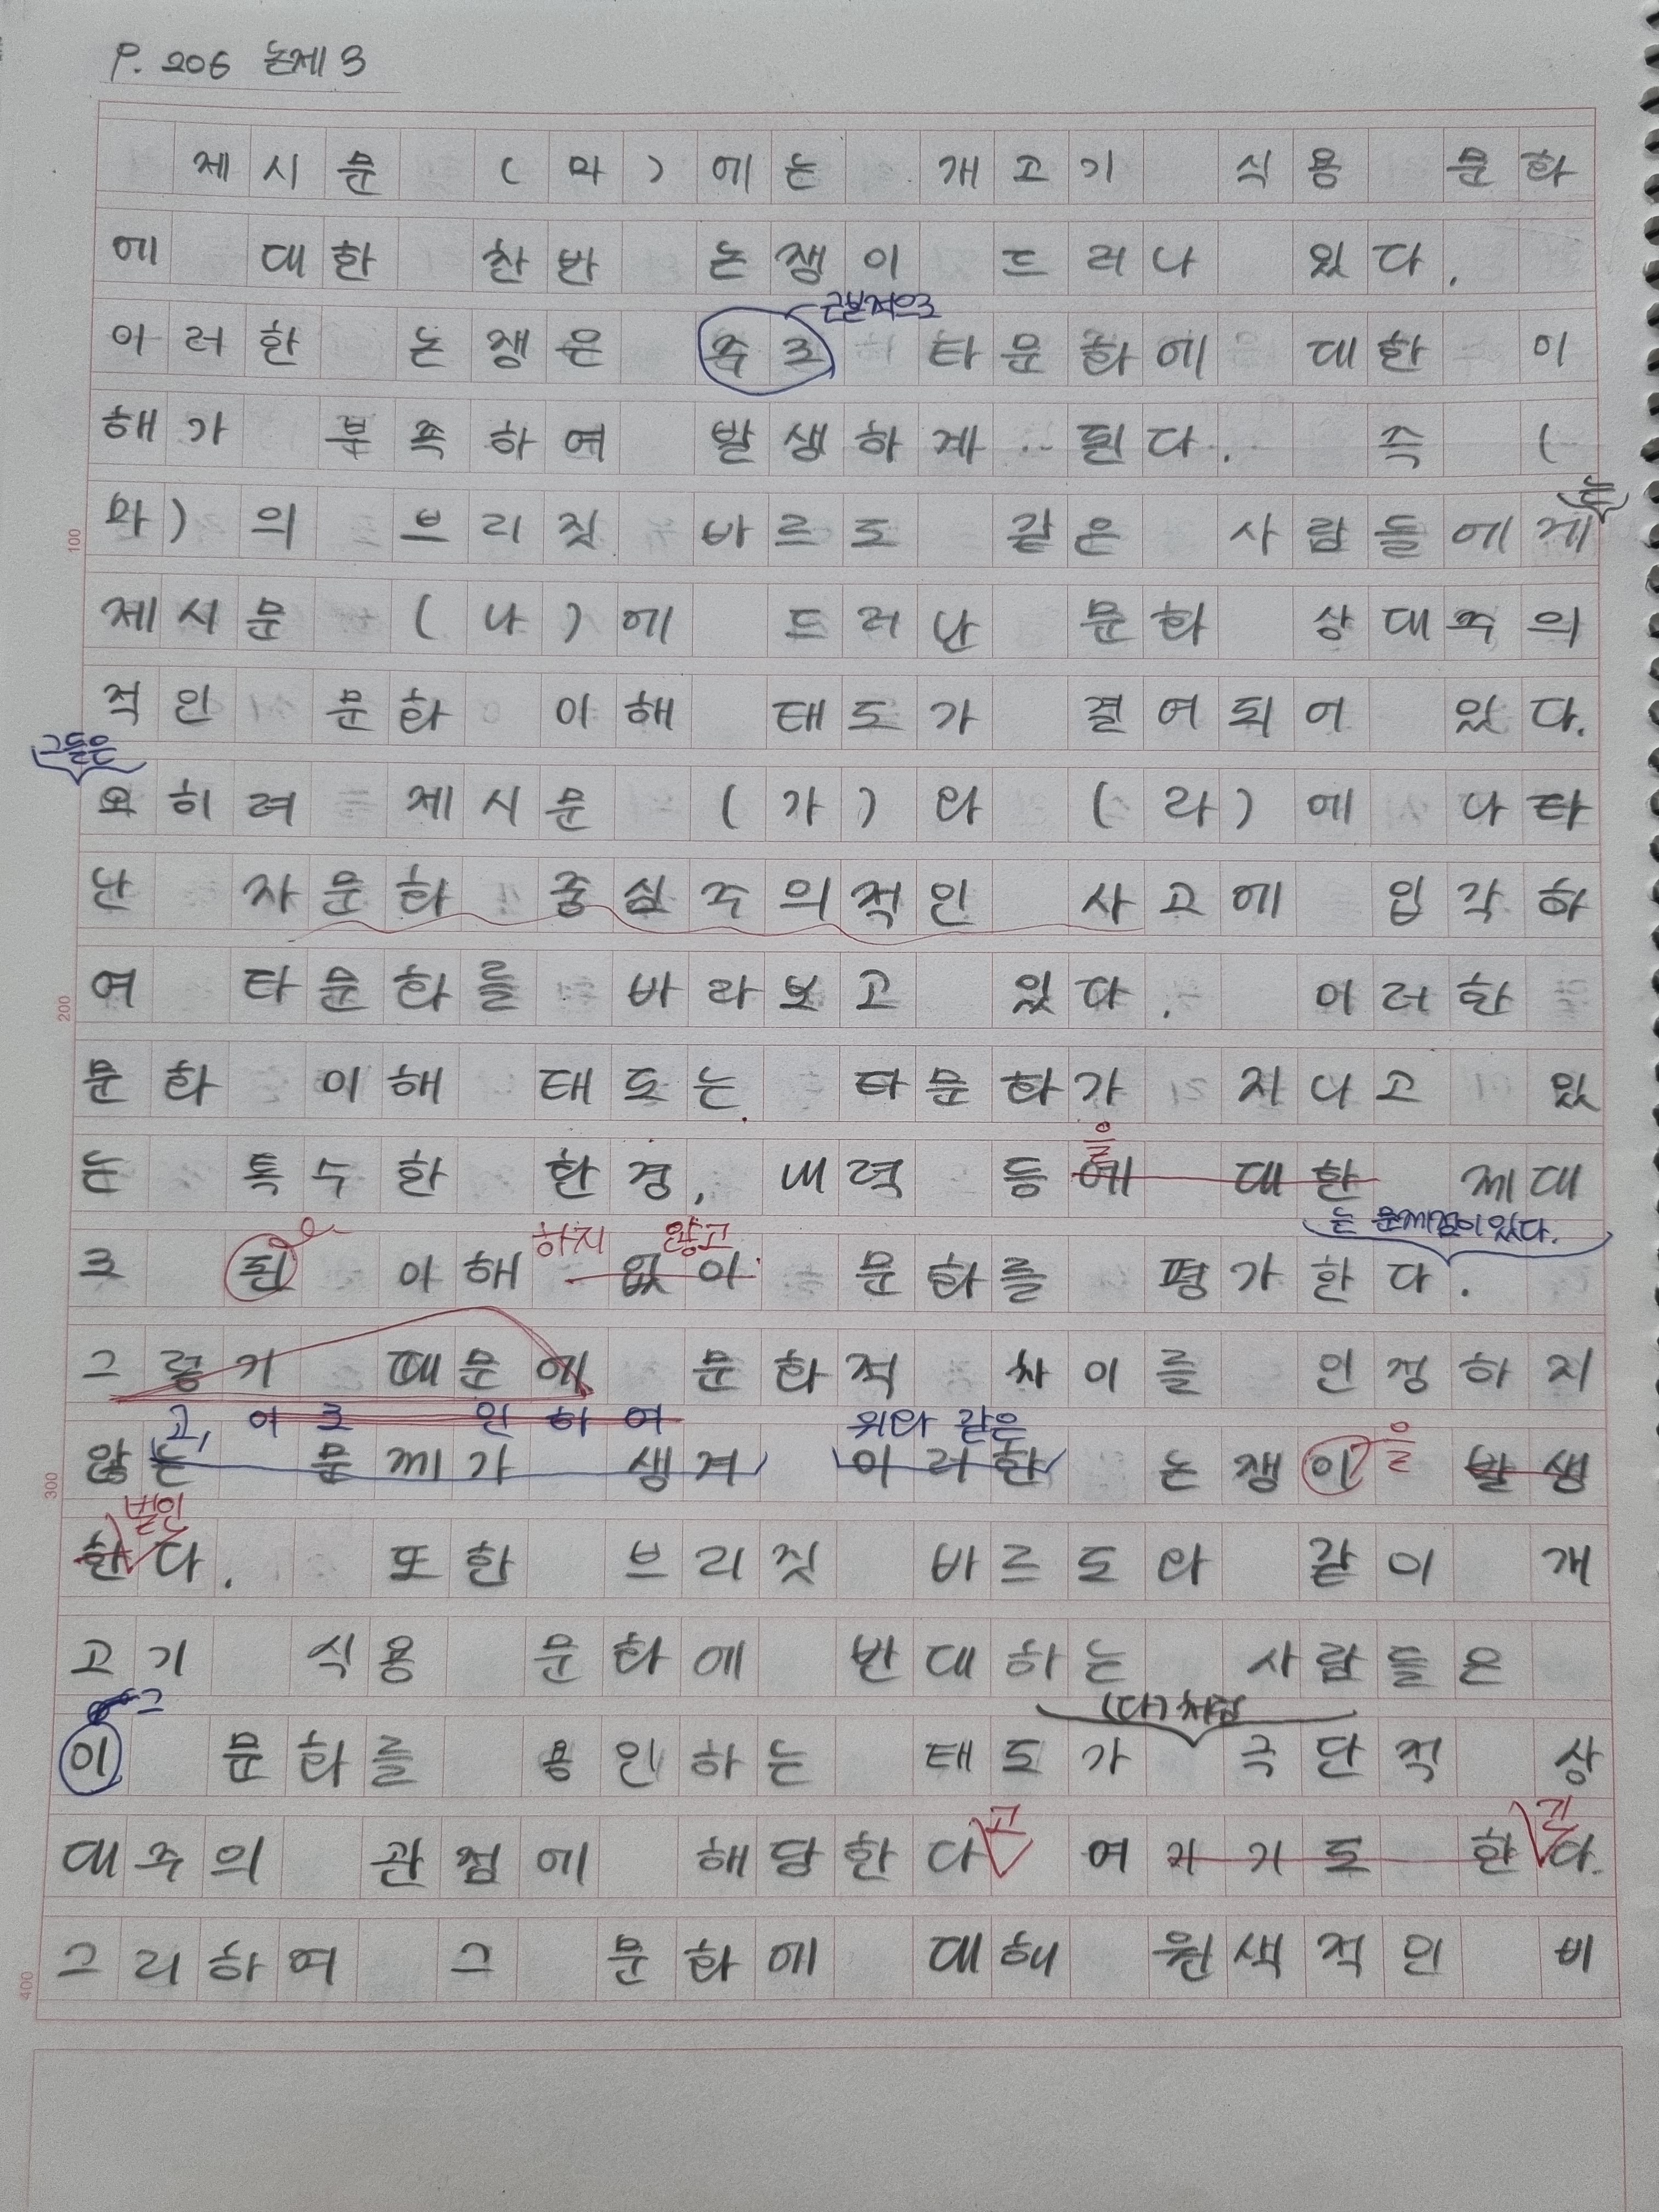 P. 206 논제 3
제시문 (마)에는 개고기 식용 문화
에 대한 찬반 논쟁이 드러나 있다.
근본적으로
이러한 논쟁은 주로 타문화에 대한 이
해가 부족하여 발생하게 된다. 즉 (
마)의 브리짓 바르도 같은 사람들에게
는
제시문 (나)에 드러난 문화 상대주의
적인 문화 이해 태도가 결여되어 있다.
그들은
오히려 제시문 (가)와 (라)에 나타
난 자문화 중심주의적인 사고에 입각하
여 타문화를 바라보고 있다. 이러한
문화 이해 태도는 타문화가 지니고 있
을
는 특수한 환경, 내력 등에 대한 제대
하지 않고 는 문제점이 있다.
로 된 이해 없이 문화를 평가한다.
그렇기 때문에 문화적 차이를 인정하지
고, 이로 인하여 위와 같은
않는 문제가 생겨 이러한 논쟁이 발생
을
벌인
한다. 또한 브리짓 바르도와 같이 개
고기 식용 문화에 반대하는 사람들은
그 (다)처럼
이 문화를 용인하는 태도가 극단적 상
고 긴
대주의 관점에 해당한다 여기기도 한다.
그리하여 그 문화에 대해 원색적인 비
100
200
300
400